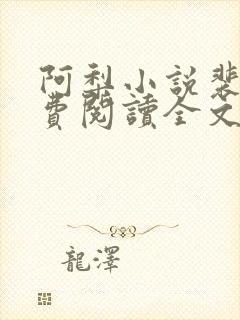 阿梨小說裴
費閱讀全文
龍澤